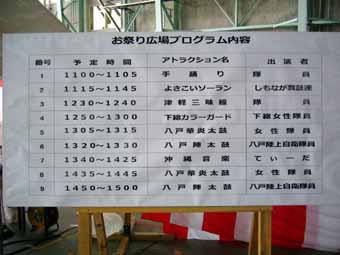 お祭り広場プログラム内容
番号 予定時間 アトラクション名 出演者
1 1100～1105 手踊り 隊員
2 1115～1145 よさこいソーラン しもなが舞鼓連
3 1230～1240 津軽三味線 隊員
4 1250～1300 下総カラーガード 下総女性隊員
5 1305～1315 八戸華炎太鼓 女性隊員
6 1320～1330 八戸陸太鼓 八戸陸上自衛隊員
7 1340～1425 沖縄音楽 てぃーだ
8 1435～1445 八戸華炎太鼓 女性隊員
9 1450～1500 八戸陸太鼓 八戸陸上自衛隊員